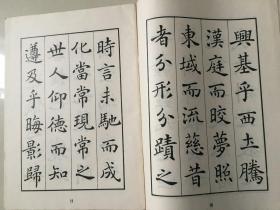 興基乎西土騰
漢庭而皎夢照
東域而流慈昔
者分形分蹟之
時言未馳而成
化當常現常之
世人仰德而知
遵及乎晦影歸